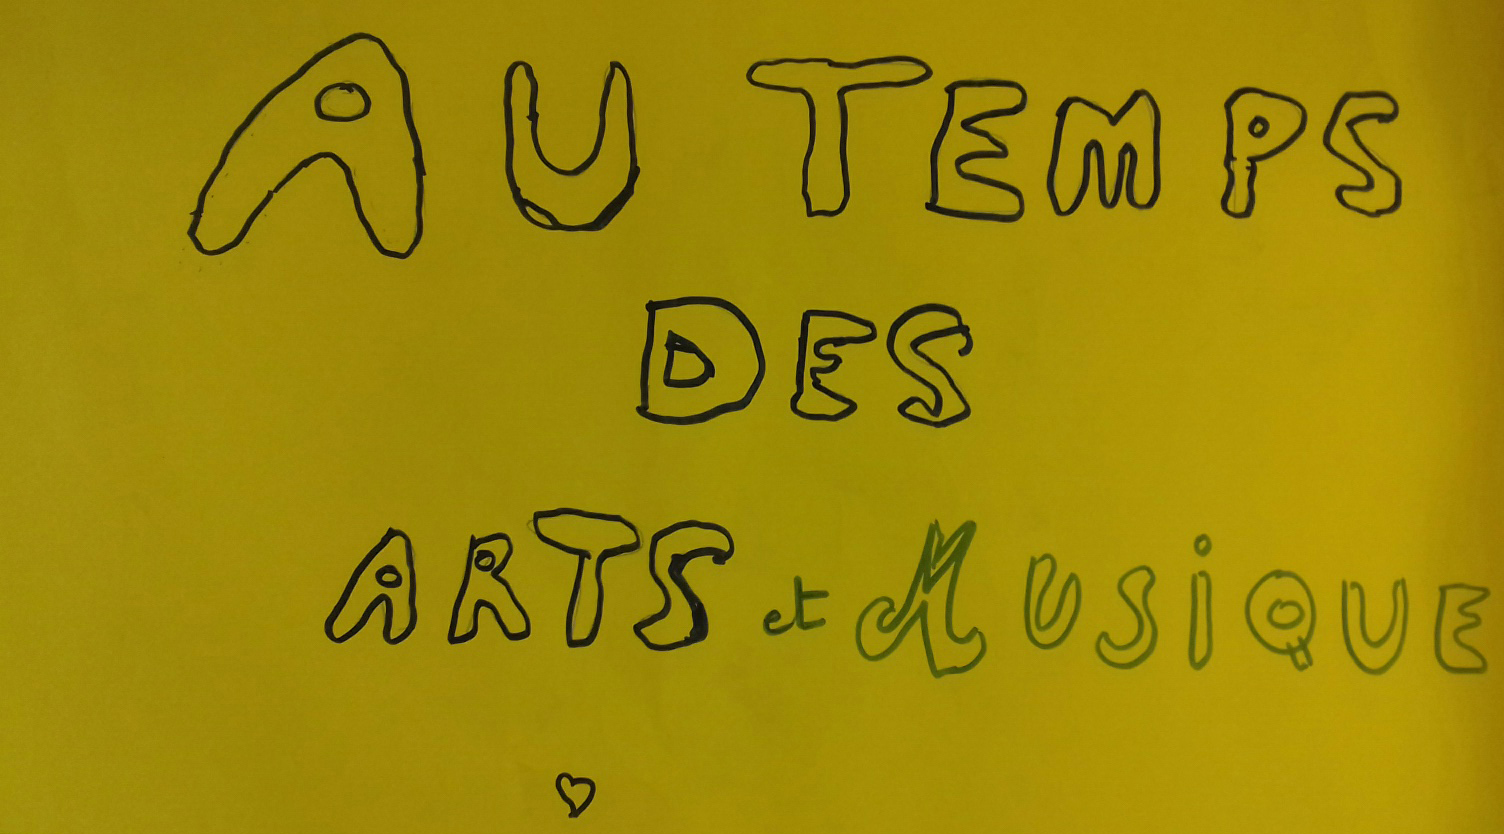 AU TEMPS
DES
ARTS et MUSiQUE